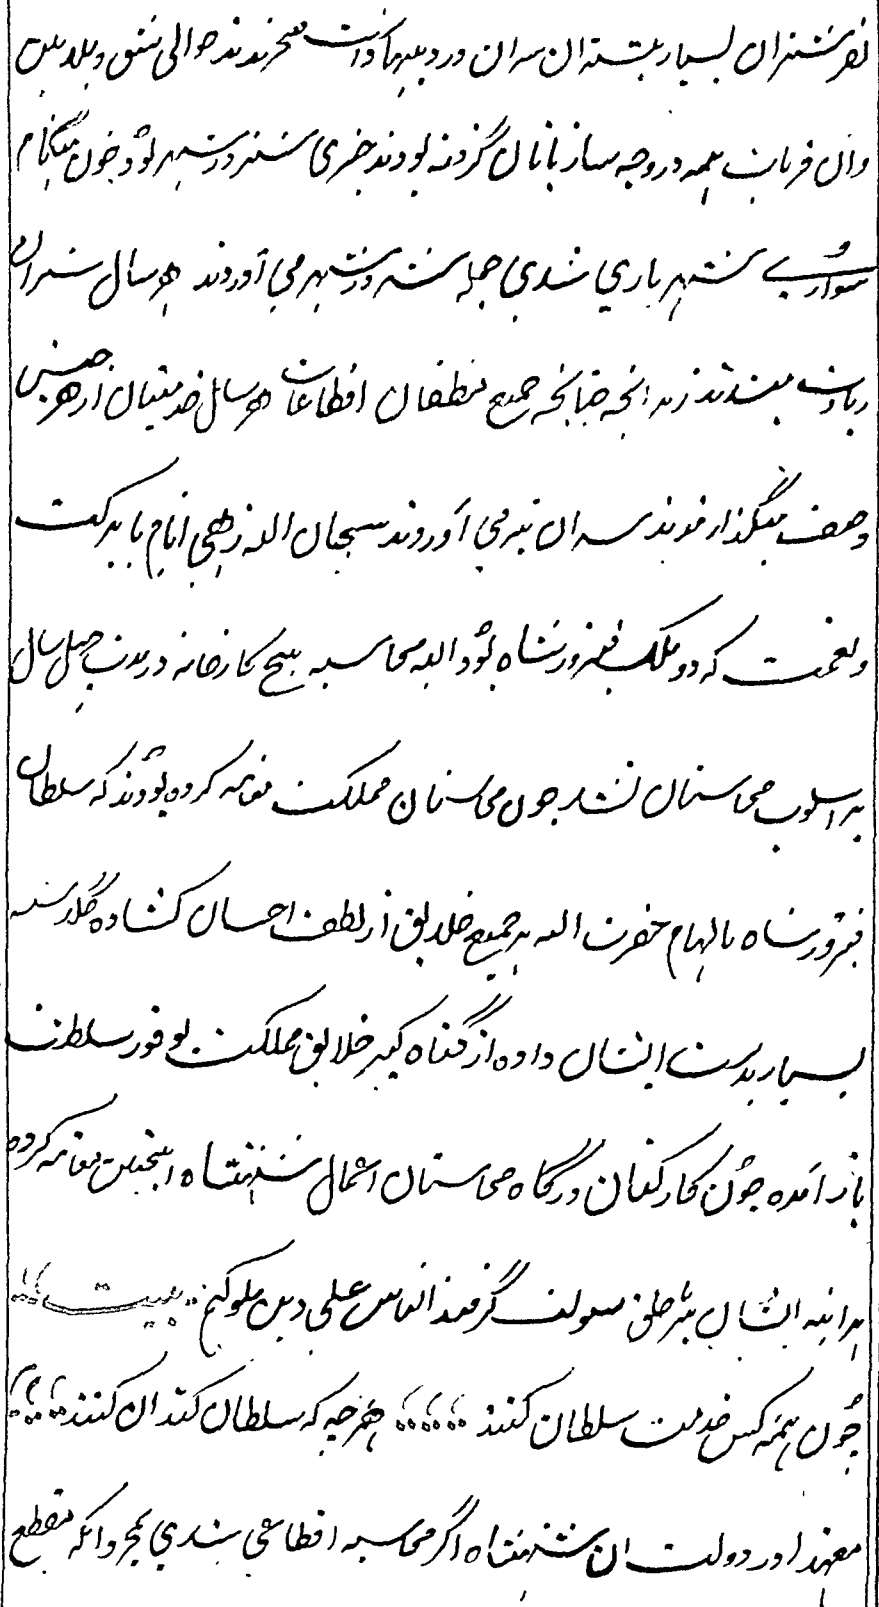 نفر شتران بسیار بستدان سران در دیبهاء حوالی شق دبلاهن
وان قریات همه در وجه ساربانان گردنه بودند چیزی شتر در شهر بود چون هنگام
سواری شهریاری شدی جمله شتر در شهر می آوردند هر سال شتران
زیادت میشدند زیرانچه چنانچه جمیع مقطعان اقطاعات هر سال خدمتیان از هر جنس
وصف میگذارنوند سران نیز می آوردند سبحان الله زهی ایام با برکت
و نعمت که در ملک فیروز شاه بود البه محاسبه هیچ کارخانه در مدت چهل سال
بر اسلوب محاستان نشد چون محاسبان مملکت معاینه کرده بودند که سلطان
فیروز شاه بالهام حضرت الله بر جمیع خلایق از لطف احسان کشاده گلدسته
بسیار بدست ایشان داده از گناه کبیر خلایق مملکت بوفور سلطنت
باز آمده چون کارکنان درگاه محاستان اعمال شهنشاه اینچنین معاینه کرده
هرآینه ایشان بر طریق سولف گرفتند الناس علی دین ملوکهم بیت
چون همه کس خدمت سلطان کنند هر چه که سلطان کند آن کنند
معهذا در دولت ان شهنشاه اگر محاسبه اقطاعی شدی بمجرد آنکه مقطع